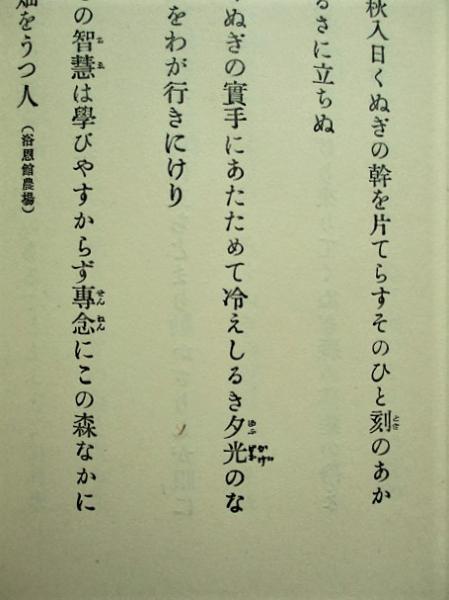 秋入日くぬぎの幹を片てらすそのひと刻のあか
るさに立ちぬ
ぬぎの實手にあたためて冷えしるき夕光のな
をわが行きにけり
の智慧は學びやすからず專念にこの森なかに
をうつ人(浴恩館農場)